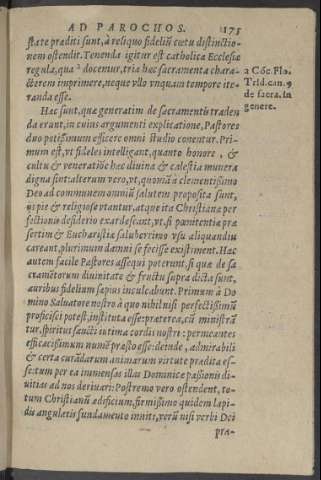 AD PAROCHOS. 175
ſtate præditi ſunt, à reliquo fideliũ cœtu diſtinctio-
nem oſtendit. Tenenda igitur eſt catholica Eccleſiæ
regula, qua ᵃ docemur, tria hæc ſacramenta chara-
cterem imprimere, neque vllo vnquam tempore ite-
randa eſſe.
a Cõc. Flo.
Trid. can. 9
de ſacra. in
genere.
Hæc ſunt, quæ generatim de ſacramentis traden
da erunt, in cuius argumenti explicatione, Paſtores
duo potiſsimum efficere omni ſtudio conentur. Pri-
mum eſt, vt fideles intelligant, quanto honore, &
cultu & veneratiõe hæc diuina & cæleſtia munera
digna ſint: alterum vero, vt, quoniã à clementiſsimo
Deo ad communem omniũ ſalutem propoſita ſunt,
ijs piè & religioſe vtantur, atque ita Chriſtianæ per
fectionis deſiderio exardeſcant, vt, ſi pœnitentiæ præ
ſertim & Euchariſtiæ ſaluberrimo vſu aliquandiu
careant, plurimum damni ſe feciſſe exiſtiment. Hæc
autem facile Paſtores aſſequi poterunt, ſi quæ de ſa
cramẽtorum diuinitate & fructu ſupra dicta ſunt,
auribus fidelium ſæpius inculcabunt. Primum à Do
mino Saluatore noſtro à quo nihil niſi perfectiſsimũ
proficiſci poteſt, inſtituta eſſe: præterea, cũ miniſtrã
tur, ſpiritus ſancti intima cordis noſtri: permeantes
efficaciſsimum numẽ præſto eſſe: deinde, admirabili
& certa curãdarum animarum virtute prædita eſ-
ſe: tum per ea immenſas illas Dominicæ paſsionis di-
uitias ad nos deriuari: Poſtremo vero oſtendent, to-
tum Chriſtianũ ædificium, firmiſsimo quidem lapi-
dis angularis fundamento inniti, verũ niſi verbi Dei
præ-